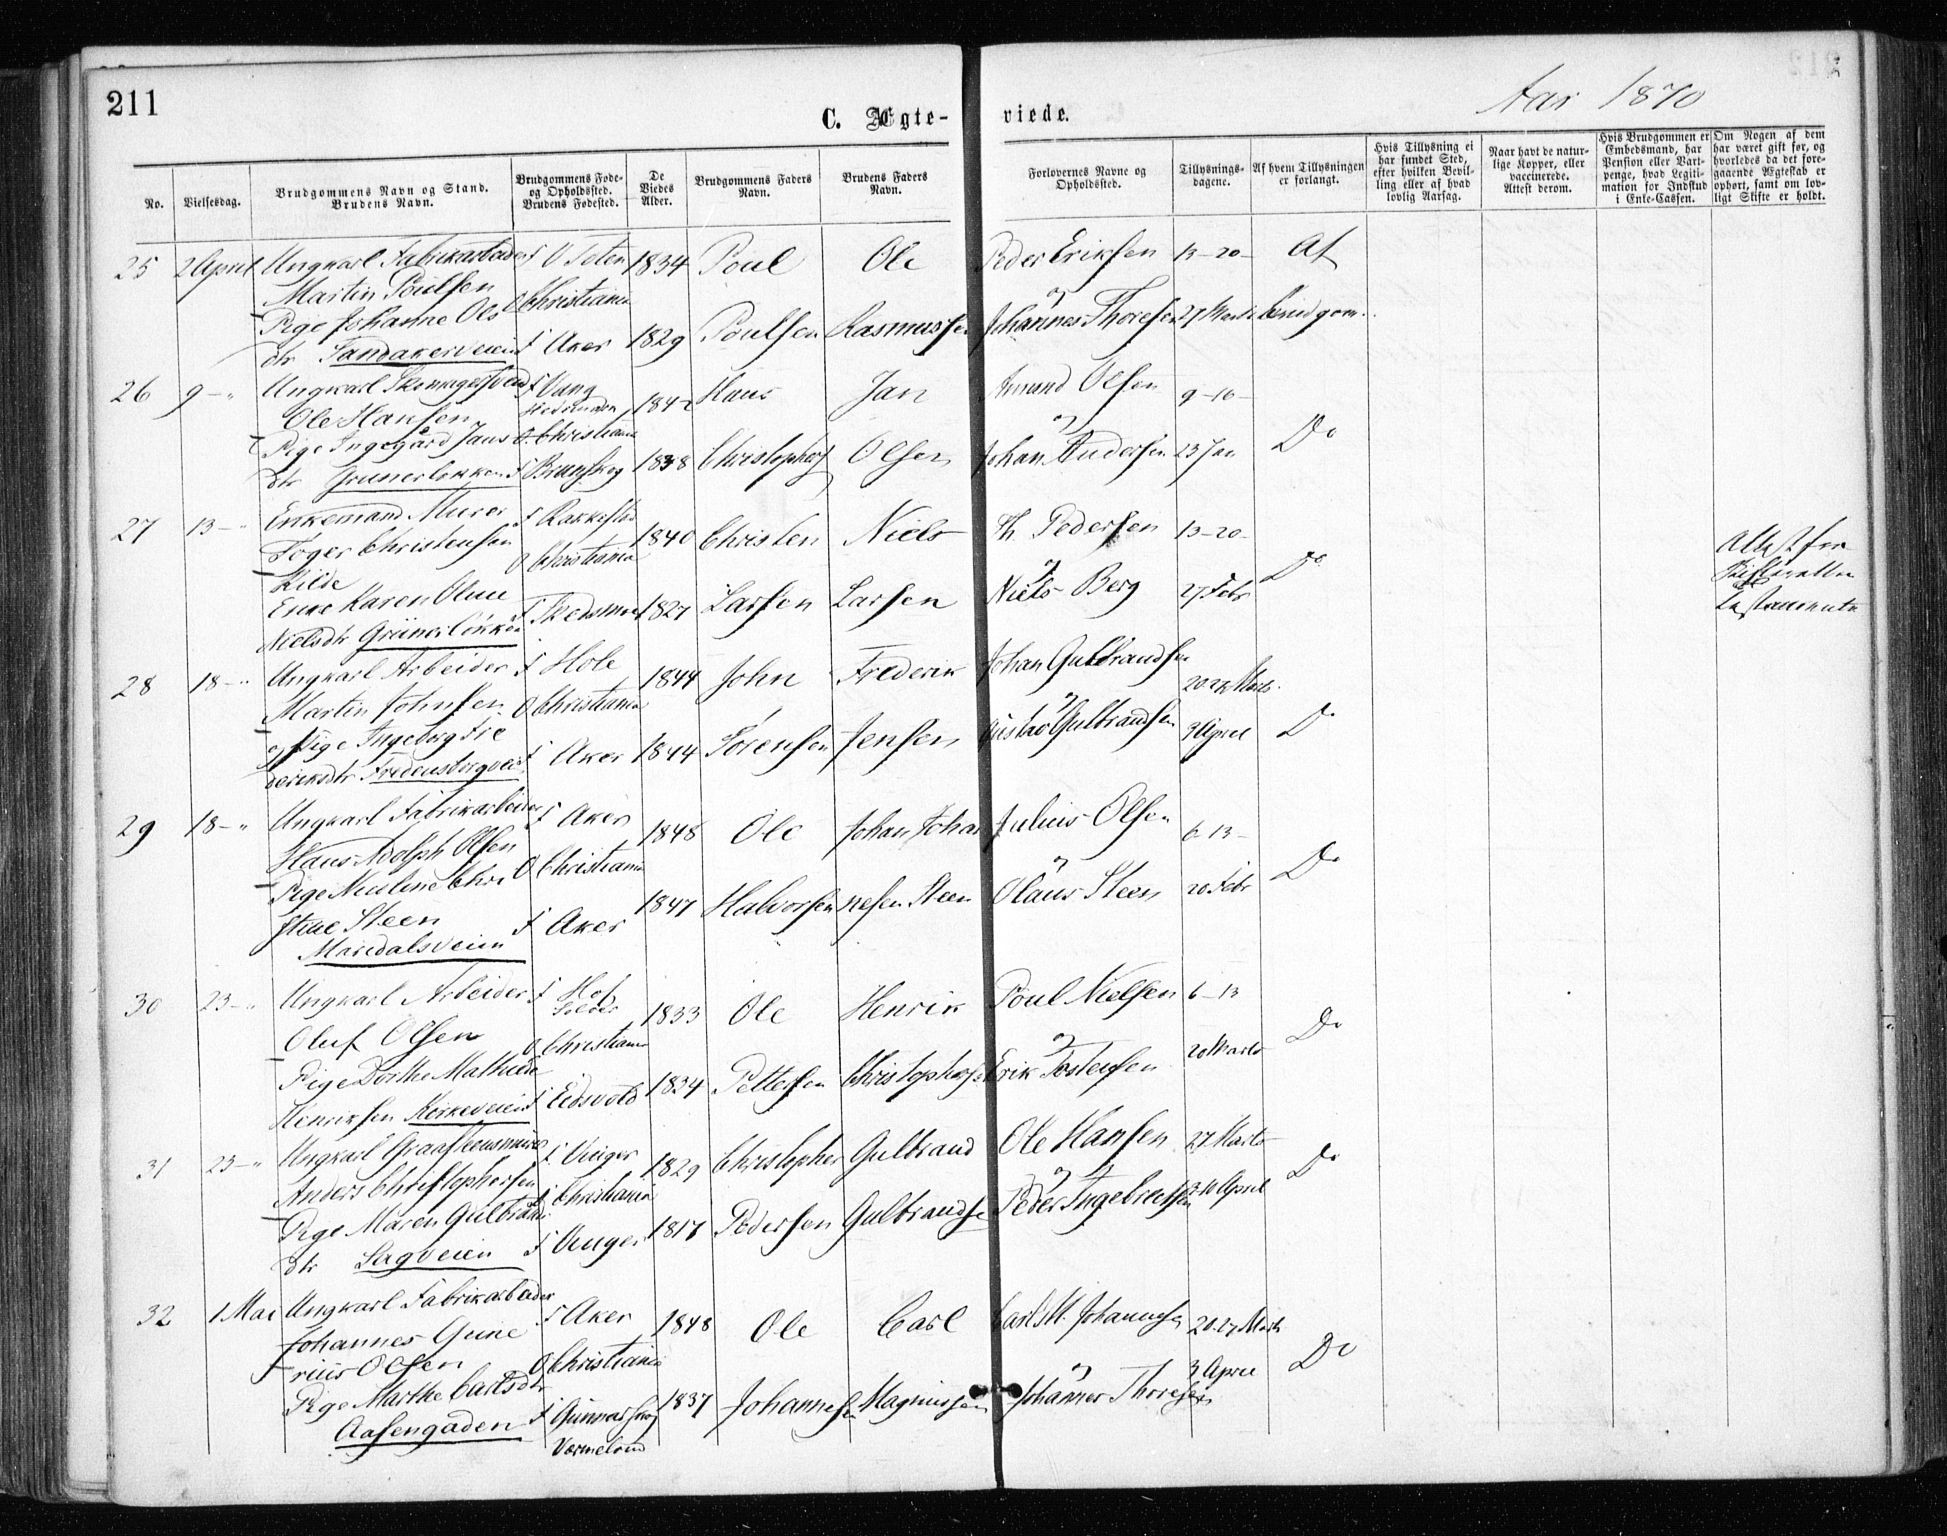 211
C. Ægte-
viede.
Aar 1870
No.
Vielsesdag.
Brudgommens Navn og Stand.
Brudens Navn.
Brudgommens Føde-
og Opholdssted.
Brudens Fødested.
De
Viedes
Alder.
Brudgommens Faders
Navn.
Brudens Faders
Navn.
Forlovernes Navne og
Opholdssted.
Tillysnings-
dagene.
Af hvem Tillysningen
er forlangt.
Hvis Tillysning ei
har fundet Sted,
efter hvilken Bevil-
ling eller af hvad
lovlig Aarsag.
Naar havt de natur-
lige Kopper, eller
vaccinerede.
Attest derom.
Hvis Brudgommen er
Embedsmand, har
Pension eller Vart-
penge, hvad Legiti-
mation for Indskud
i Enke-Cassen.
Om Nogen af dem
har været gift før, og
hvorledes da det fore-
gaaende Ægteskab er
ophørt, samt om lov-
ligt Skifte er holdt.
25 2 April Ungkarl Fabrikarbeider F V Toten 1834 Poul Ole Peder Eriksen 13-20- Af
Martin Poulsen O Christiania og
Pige Johanne Ols
dtr Sandakerveien F Aker 1829 Poulsen Rasmussen Johannes Thoresen 27 Marts Brudgom.
26 9 - " Ungkarl Skomagersvend F Vang 1842 Hans Jan Amund Olsen 9-16-
Ole Hansen Hedemarken og
Pige Ingegård Jans O Christiania Do
dtr Grunerløkken F Brunskog 1838 Christophers Olsen Johan Andersen 23 Jan
27 13 - " Enkemand Murer F Rakkestad 1840 Christen Niels Th Pedersen 13-20-
Christensen O Christiania og Do
Kilde
Enke Karen Oline F Skedsmo 1827 Larsen Larsen Niels Berg 27 Febr
Nielsdtr Grünerløkken
Attest fra
28 18 - " Ungkarl Arbeider F Hole 1844 John Frederik Johan Gulbrandsen 20 27 Marts.
Martin Johnsen O Christiania og
Pige Ingeborg Fre F Aker 1844 Sørensen Jensen Gustav Gulbrandsen 3 April Do
deriksdtr Fredensborgveien
29 18 - " Ungkarl Fabrikarbeider F Aker 1848 Ole Johan Johan Julius Olsen 6-13-
Hans Adolph Olsen O Christiania og Do
Pige Christine Steen F Aker 1847 Halvorsen nesen Steen Olaus Steen 20 Febr
Maridalsveien
30 23 - " Ungkarl Arbeider F Hof 1833 Ole Henrik Poul Nielsen 6-13
Oluf Olsen Solør O Christiania og 20 Marts Do
Pige Dorthe Mathilde F Eidsvold 1834 Pettersen Christophersen Erik Tostensen
Henriksen Kirkeveien
31 23 - " Ungkarl F Vinger 1829 Christopher Gulbrand Ole Hansen 27 Marts Do
Anders Christophersen O Christiania og
Pige Maren Gulbrands F Vinger 1817 Pedersen Gulbrandsen Peder Ingebretsen 3-10 April
dtr Sagveien
32 1 Mai Ungkarl Fabrikarbeider F Aker 1848 Ole Carl Carl M. Johannesen 20-27 Marts
Johannes Gune
rius Olsen O Christiania og 3 April Do
Pige Marthe Carlsdtr F Gunnarskog 1837 Johannesen Magnussen Johannes Thoresen
Aasengaden Værmeland